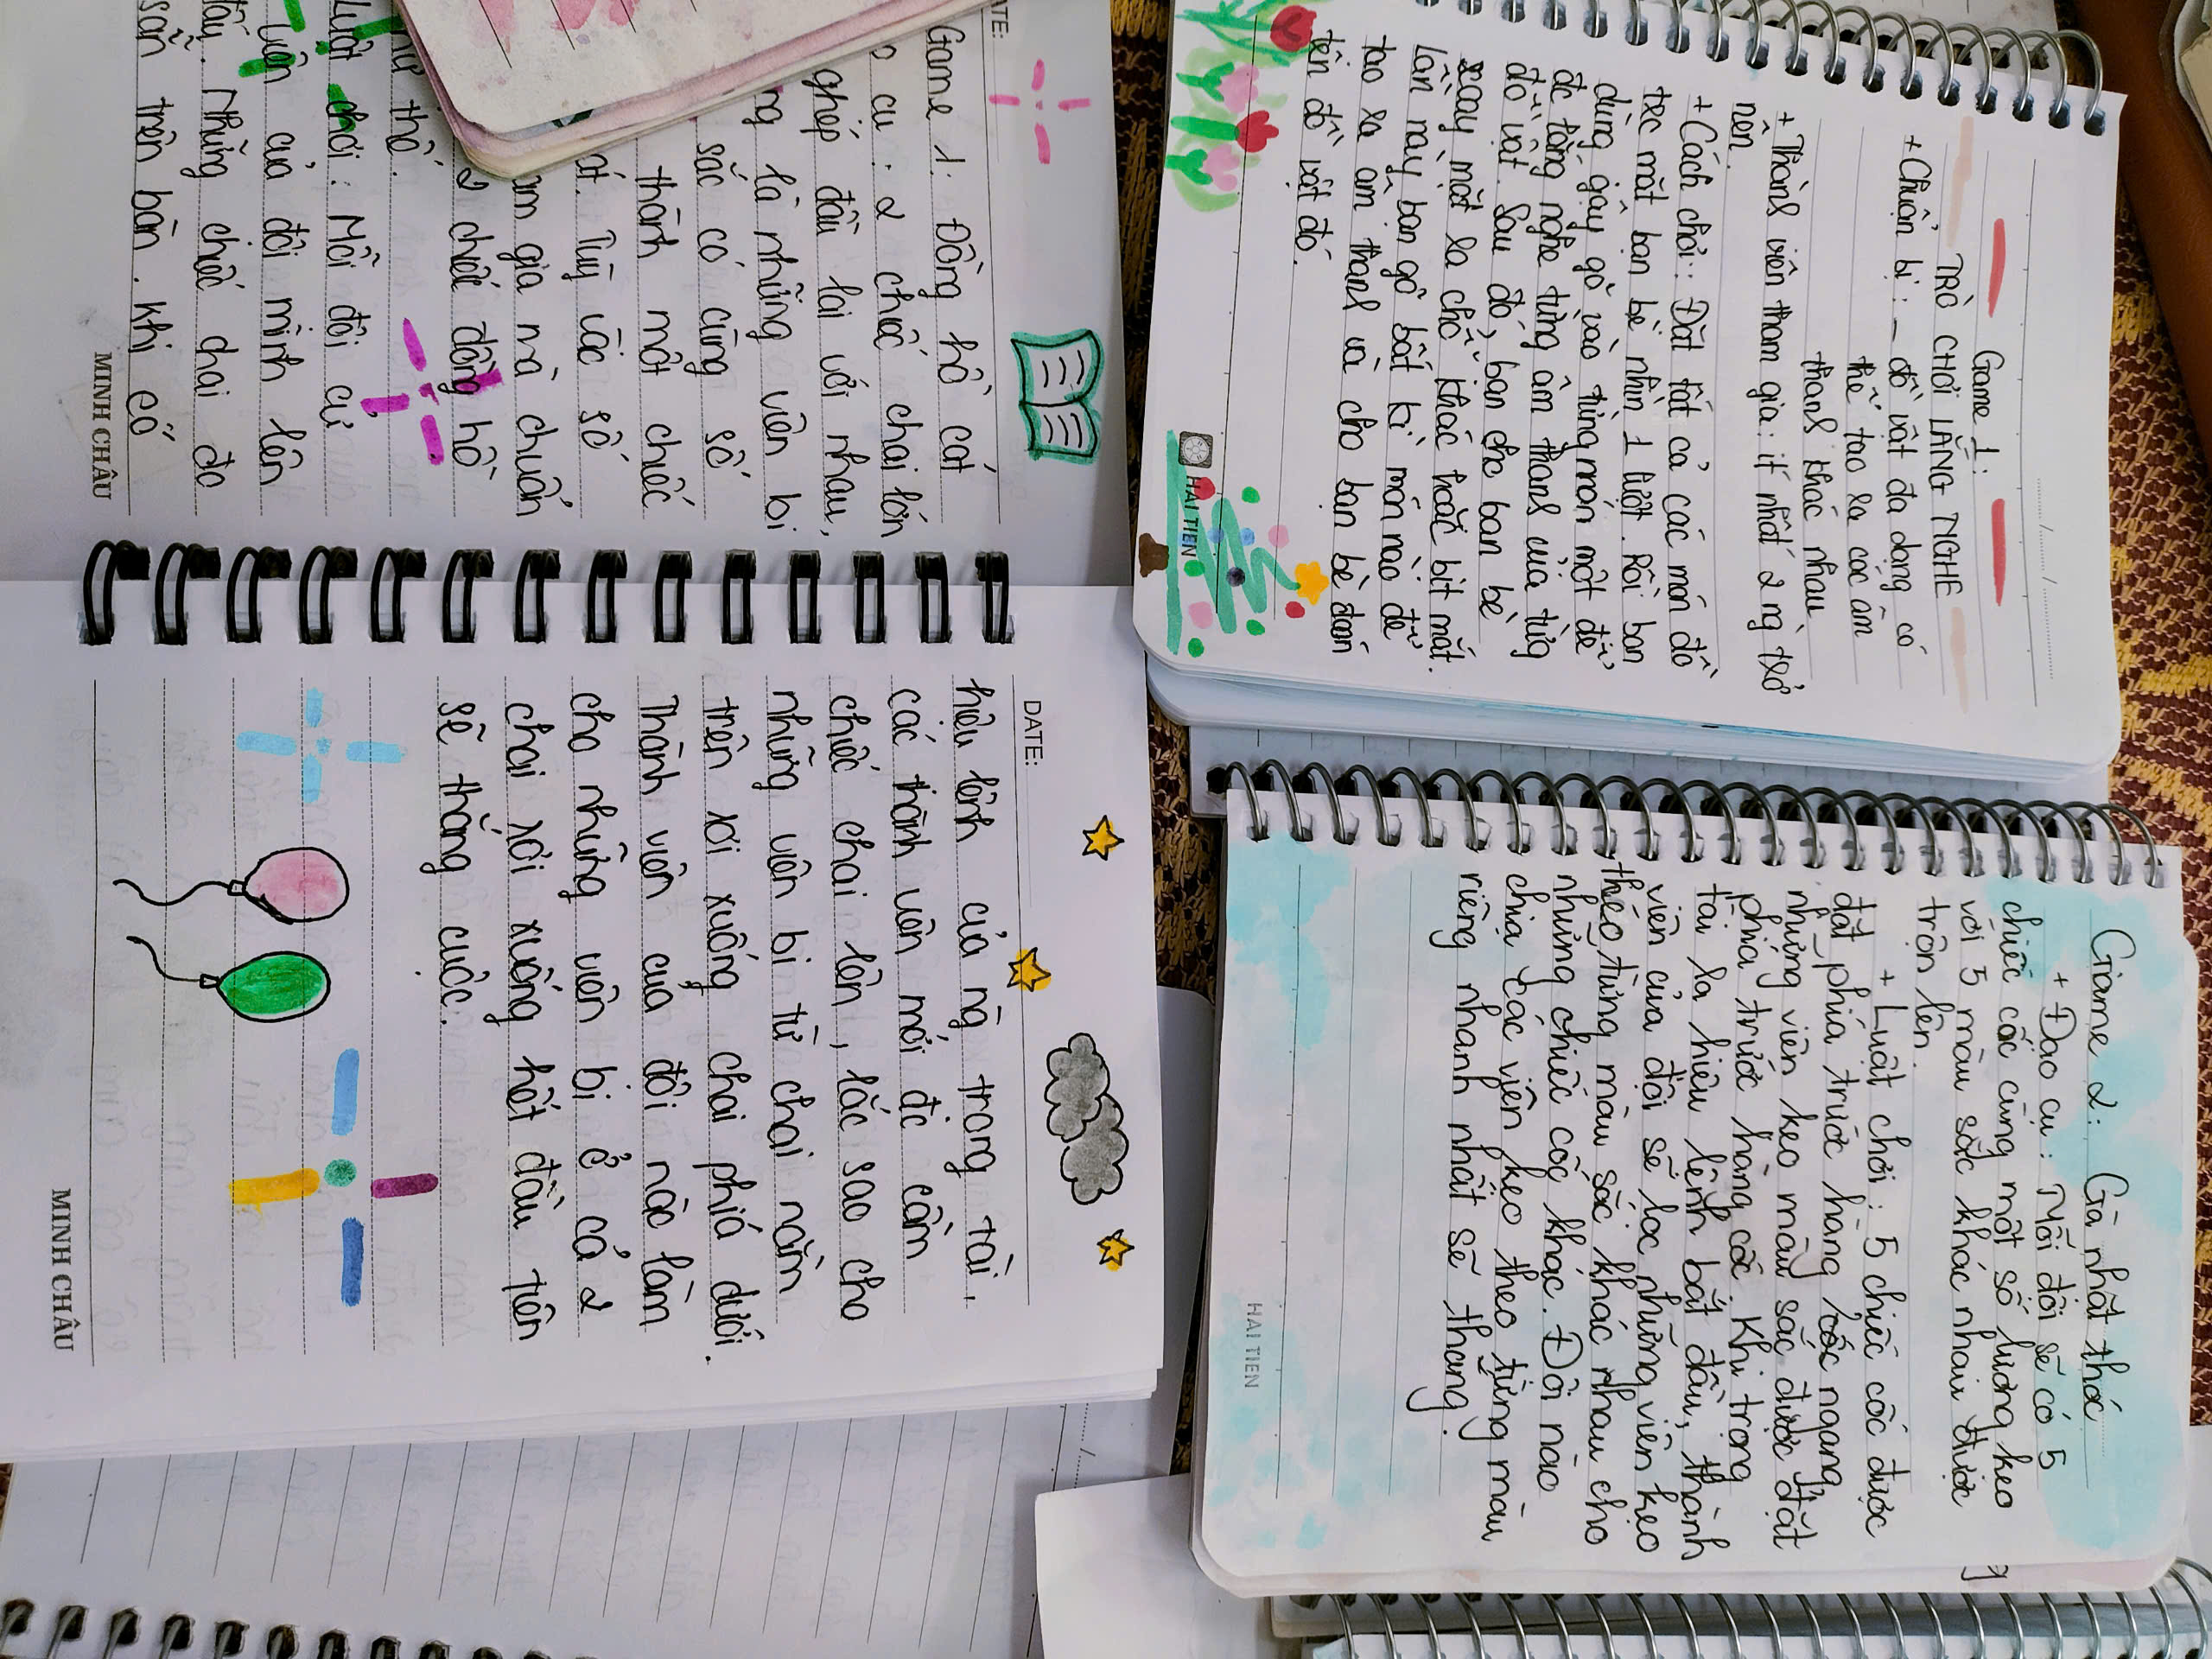 Game 1:
TRÒ CHƠI LẮNG NGHE
+ Chuẩn bị : - đồ vật đa dạng có
thể tạo ra các âm
thanh khác nhau
+ Thành viên tham gia : ít nhất 2 ng trở
nên.
+ Cách chơi : Đặt tất cả các món đồ
trc mặt bạn bè nhìn 1 lượt. Rồi bạn
dùng gậy gõ vào từng món một để
đc lắng nghe từng âm thanh của từng
đồ vật. Sau đó, bạn cho bạn bè
xoay mặt ra chỗ khác hoặc bịt mắt.
Lần này bạn gõ bất kì món nào để
tạo ra âm thanh và cho bạn bè đoán
tên đồ vật đó.
HẢI TIẾN
Game 2: Gà nhặt thóc
+ Đạo cụ : Mỗi đội sẽ có 5
chiếc cốc cùng một số lượng kẹo
với 5 màu sắc khác nhau được
trộn lên.
+ Luật chơi : 5 chiếc cốc được
đặt phía trước hàng cốc ngang,
những viên kẹo màu sắc được đặt
phía trước hàng cốc. Khi trọng
tài ra hiệu lệnh bắt đầu, thành
viên của đội sẽ lọc những viên kẹo
theo từng màu sắc khác nhau cho
những chiếc cốc khác. Đội nào
chia các viên kẹo theo từng màu
riêng nhanh nhất sẽ thắng.
HẢI TIẾN
ATE:
Game 1: Đồng hồ cát
cụ : 2 chiếc chai lớn
ghép đầu lại với nhau,
là những viên bi
sắc có cùng số
thành một chiếc
át. Tùy vóc số
am gia mà chuẩn
2 chiếc đồng hồ
thế.
Luật chơi : Mỗi đội cử
viên của đội mình lên
đầu. Những chiếc chai đc
sẵn trên bàn. Khi có
MINH CHÂU
DATE:
hiệu lệnh của ng trọng tài,
các thành viên mới đc cầm
chiếc chai lên, lắc sao cho
những viên bi từ chai nằm
trên rơi xuống chai phía dưới.
Thành viên của đội nào làm
cho những viên bi ở cả 2
chai rơi xuống hết đầu tiên
sẽ thắng cuộc.
MINH CHÂU